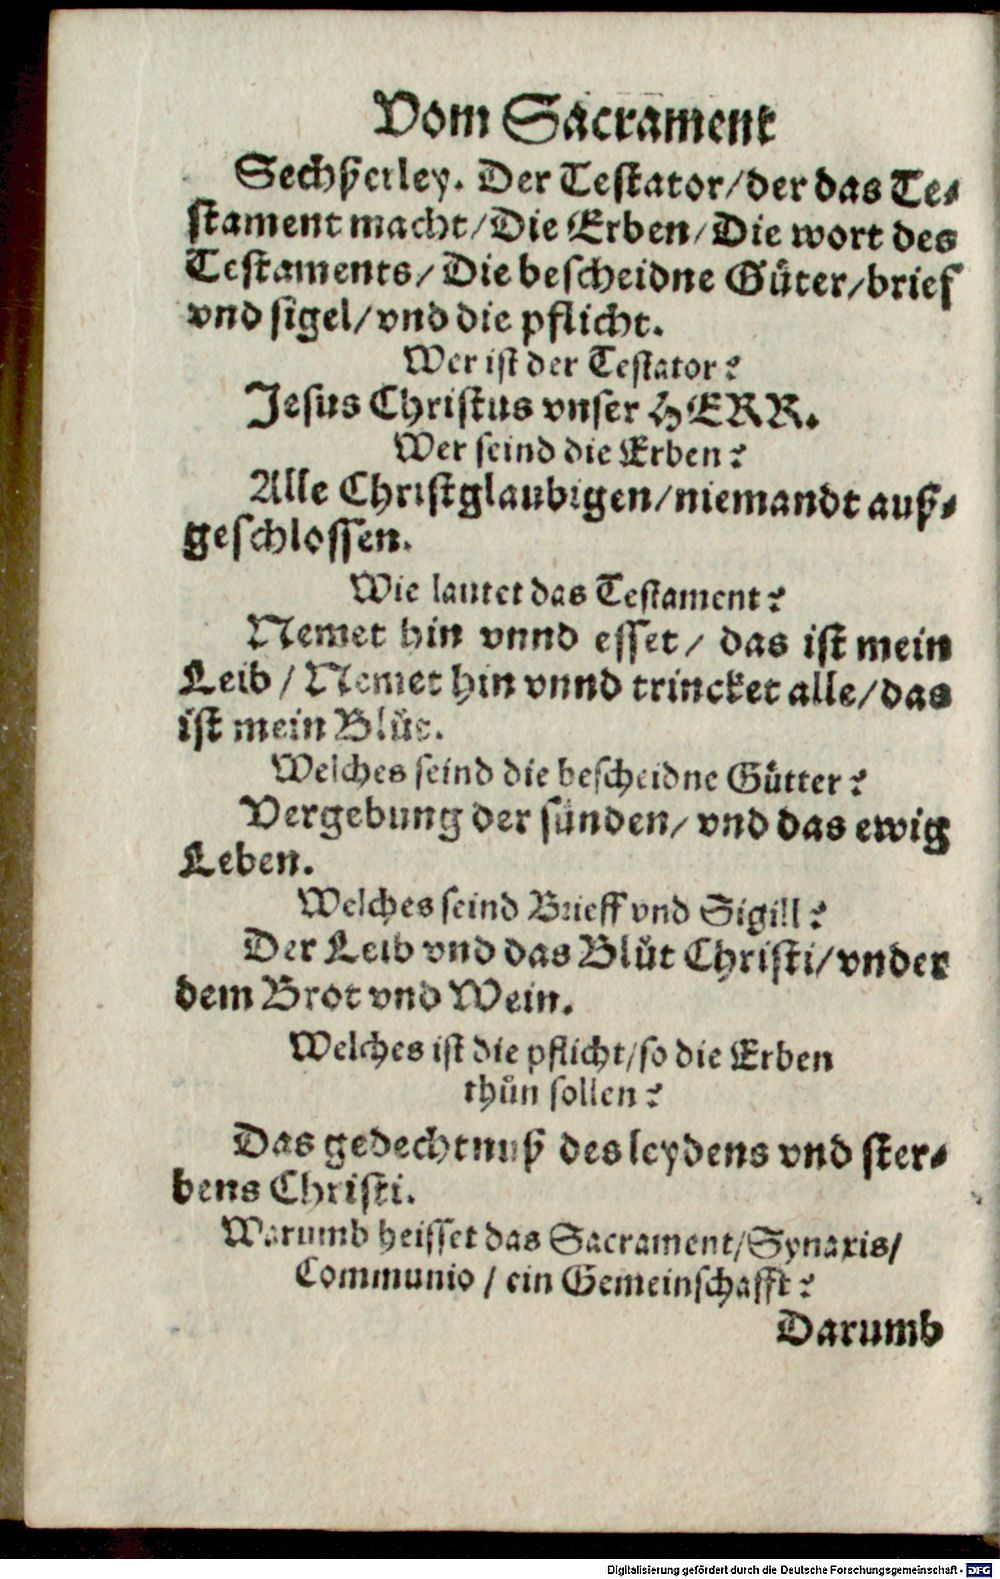 Vom Sacrament
Sechßerley. Der Testator/der das Te⸗
stament macht/Die Erben/Die wort des
Testaments/Die bescheidne Güter/brief
vnd sigel/vnd die pflicht.
Wer ist der Testator?
Jesus Christus vnser HERR.
Wer seind die Erben?
Alle Christglaubigen/niemandt auß⸗
geschlossen.
Wie lautet das Testament?
Nemet hin vnnd esset/ das ist mein
Leib / Nemet hin vnnd trincket alle/das
ist mein Blůt.
Welches seind die bescheidne Gütter?
Vergebung der sünden/ vnd das ewig
Leben.
Welches seind Brieff vnd Sigill?
Der Leib vnd das Blůt Christi/vnder
dem Brot vnd Wein.
Welches ist die pflicht/so die Erben
thůn sollen?
Das gedechtnuß des leydens vnd ster⸗
bens Christi.
Warumb heisset das Sacrament/Synaxis/
Communio / ein Gemeinschafft?
Darumb
Digitalisierung gefördert durch die Deutsche Forschungsgemeinschaft - DFG